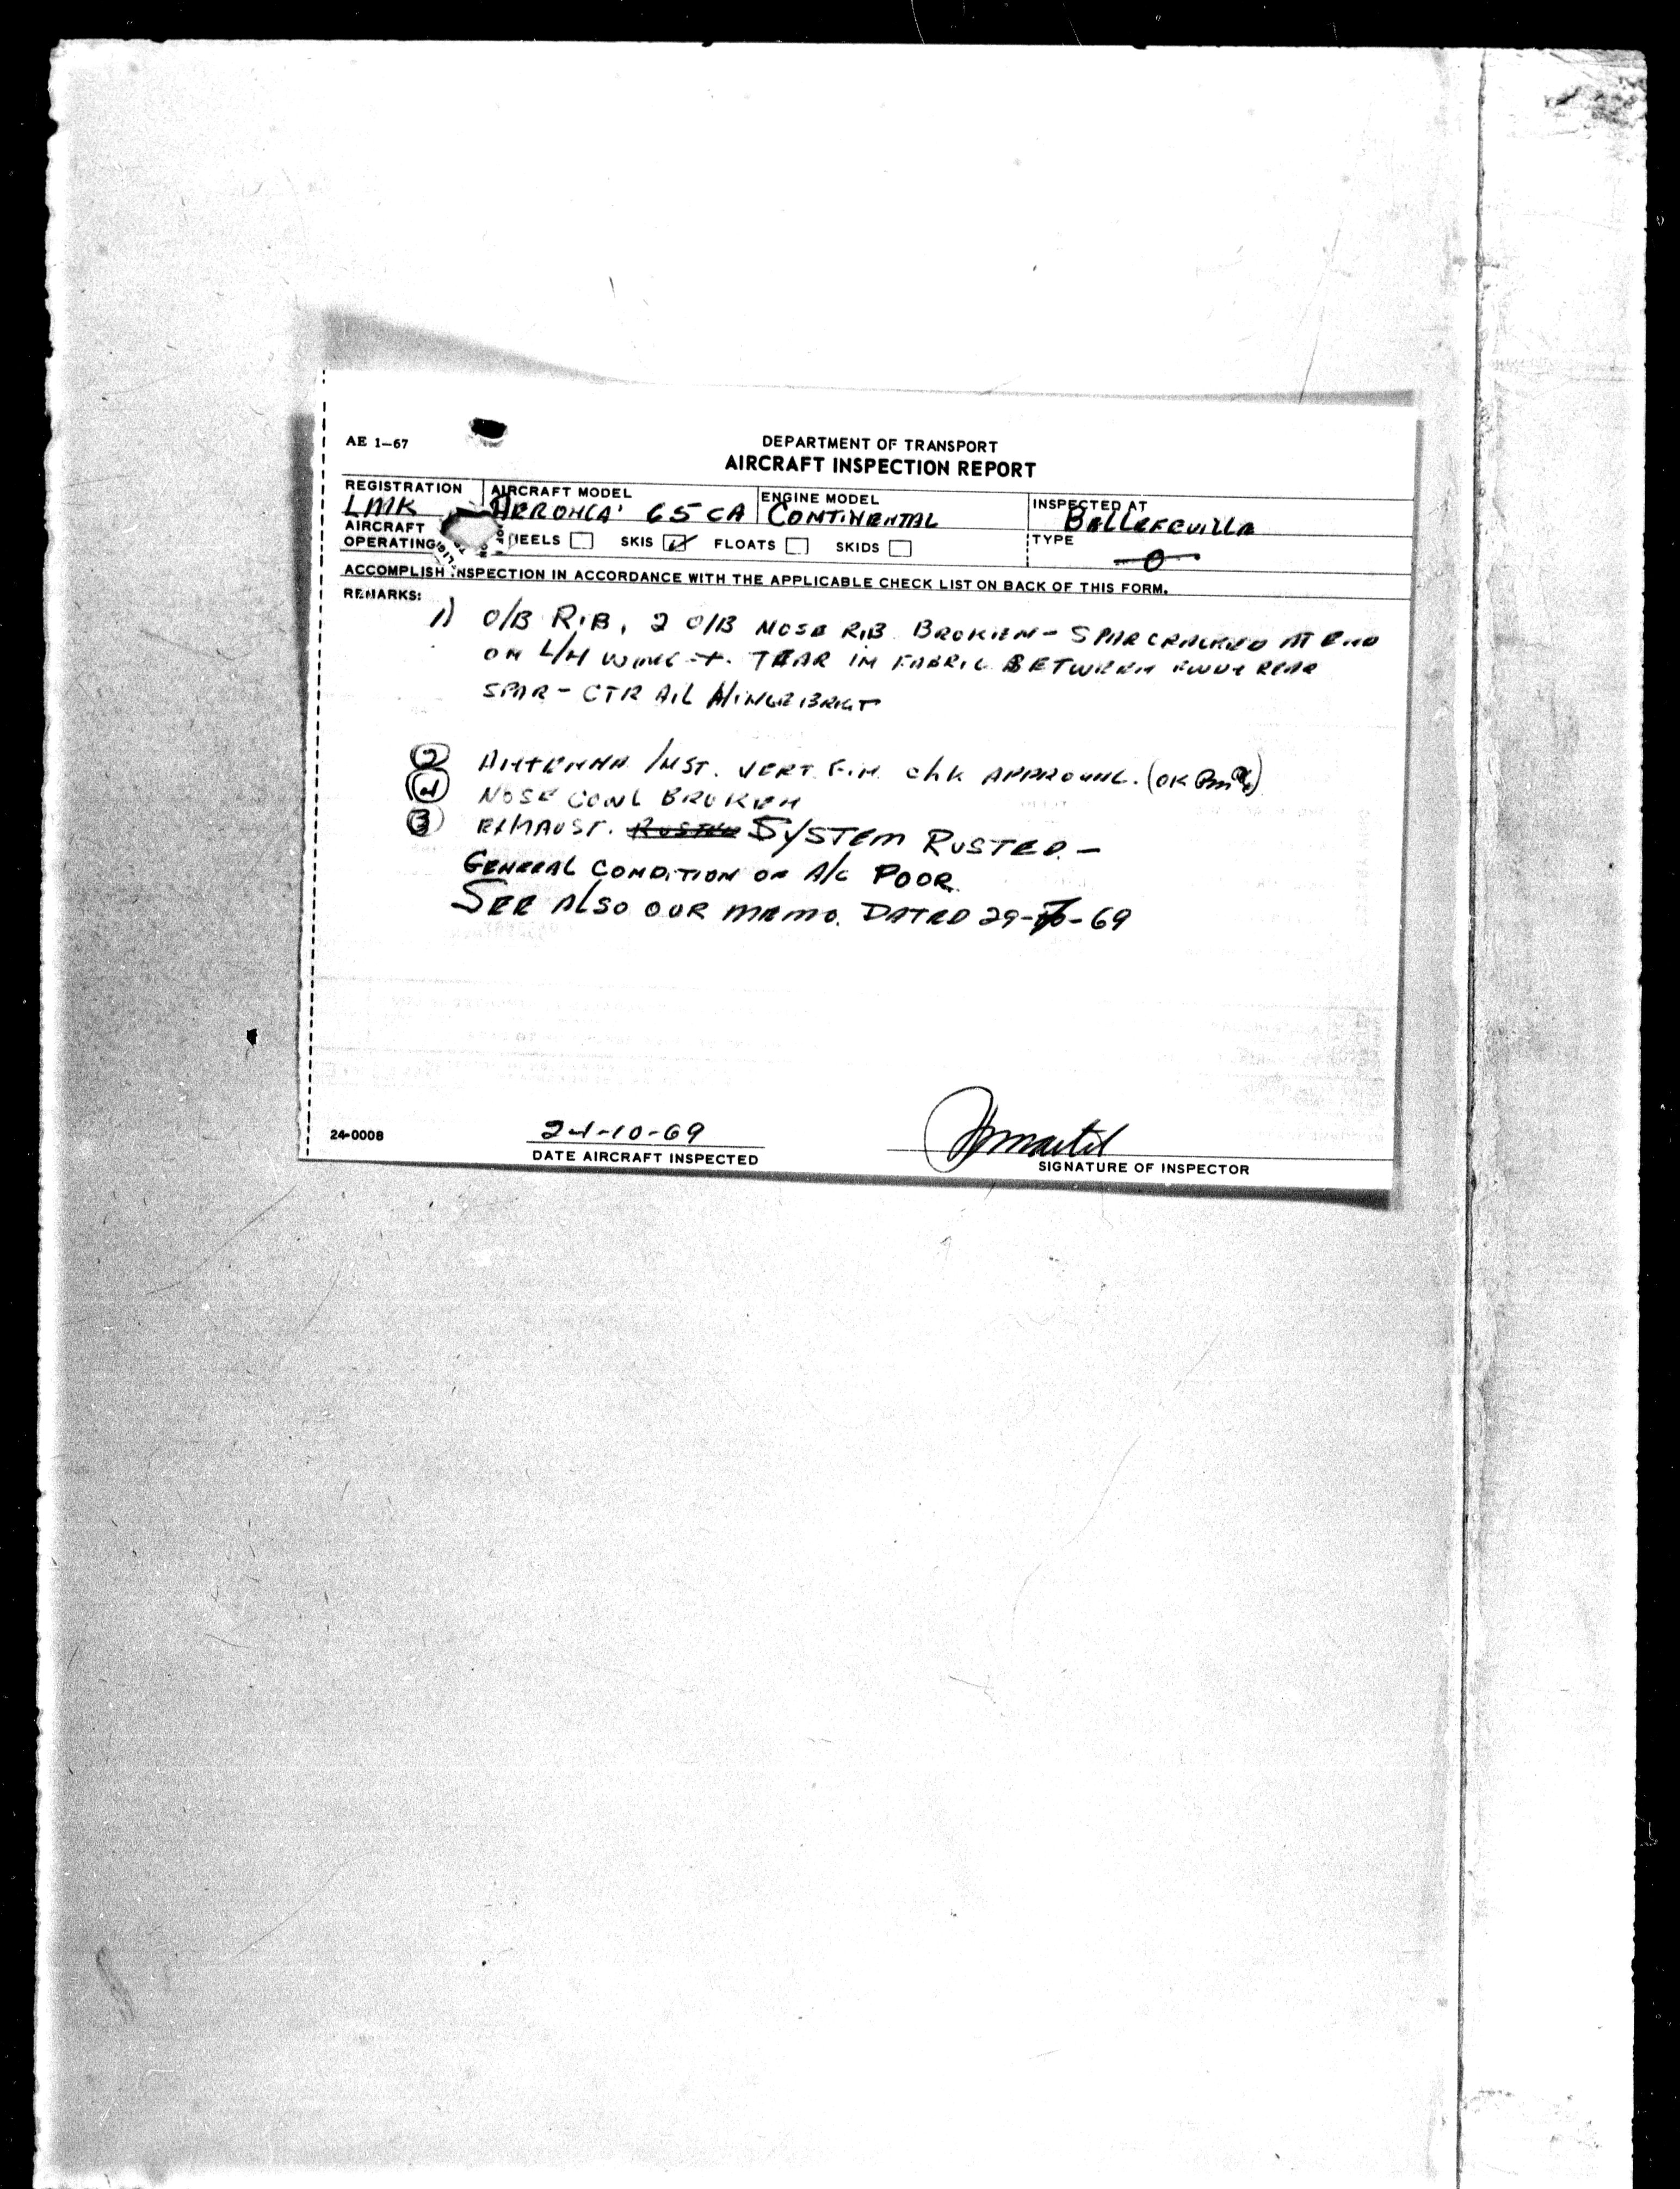 AE 1-67
DEPARTMENT OF TRANSPORT
AIRCRAFT INSPECTION REPORT
REGISTRATION AIRCRAFT MODEL ENGINE MODEL INSPECTED AT
LMK AERONCA 65 CA CONTINENTAL Bellefeuille
AIRCRAFT OPERATING HEELS SKIS FLOATS SKIDS TYPE
O
ACCOMPLISH INSPECTION IN ACCORDANCE WITH THE APPLICABLE CHECK LIST ON BACK OF THIS FORM.
REMARKS:
1) O/B RIB, 2 O/B NOSE RIB BROKEN - SPAR CRACKED AT END
ON L/H WING + TEAR IN FABRIC BETWEEN REAR
SPAR - CTR AIL HINGE BRKT
2 ANTENNA INST. VERT. FIN. chk APPROVAL. (OK
4 NOSE COWL BROKEN
3 EXHAUST. RUSTED SYSTEM RUSTED -
GENERAL CONDITION OF A/C POOR
SEE ALSO OUR MEMO. DATED 29- -69
24-0008
24-10-69
DATE AIRCRAFT INSPECTED
SIGNATURE OF INSPECTOR